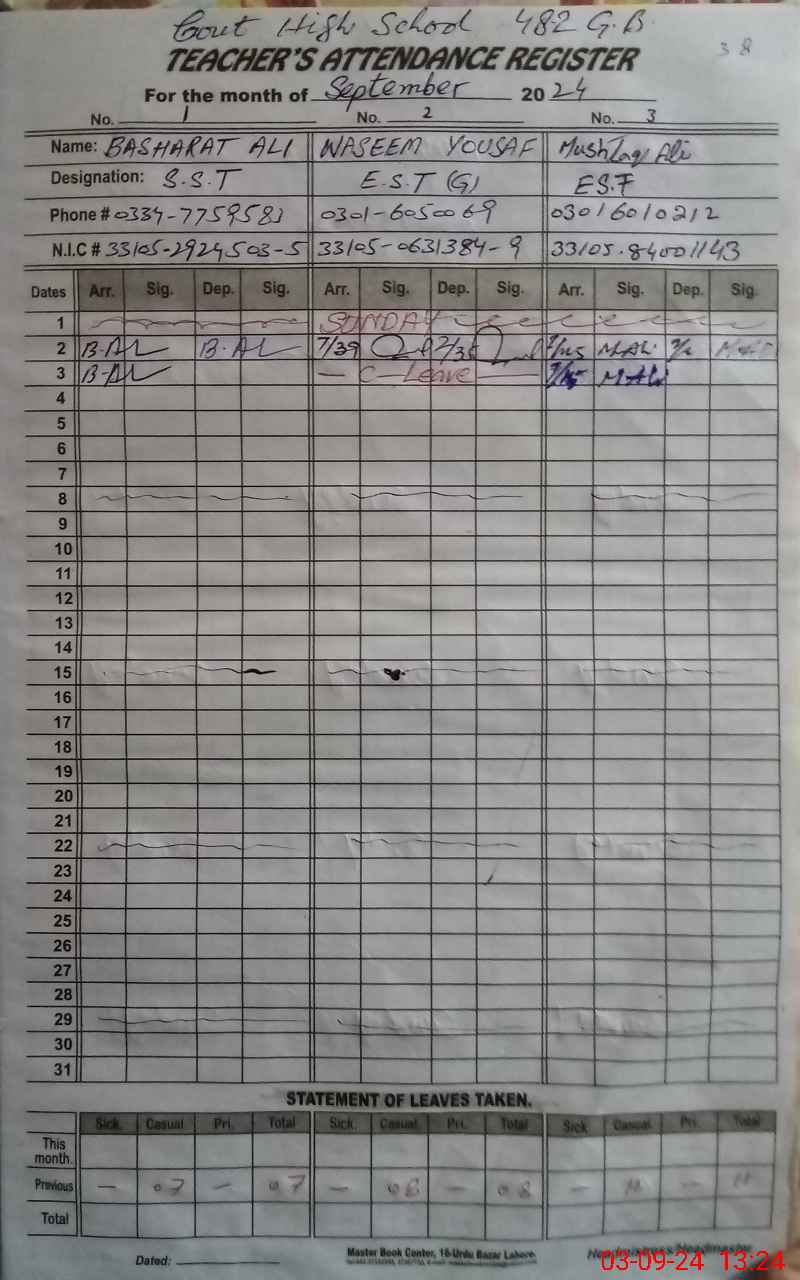 Gout High School 482 G.B
38
TEACHER'S ATTENDANCE REGISTER
For the month of September 2024
No. 1 No. 2 No. 3
Name: BASHARAT ALI WASEEM YOUSAF Mushtaq Ali
Designation: S.S.T E.S.T (G) E.S.T
Phone # 0334-7759583 0301-6050069 03016010212
N.I.C # 33105-2924503-5 33105-0631384-9 33105.84001143
Dates Arr. Sig. Dep. Sig. Arr. Sig. Dep. Sig. Arr. Sig. Dep. Sig.
1 SUNDAY
2 B-AL B-AL 7/39 M.ALi
3 B-AL — C-Leave — 7/45 M ALi
4
5
6
7
8
9
10
11
12
13
14
15
16
17
18
19
20
21
22
23
24
25
26
27
28
29
30
31
STATEMENT OF LEAVES TAKEN.
Sick. Casual Pri. Total Sick. Casual Pri. Total Sick Casual Pri. Total
This month.
Previous — 07 — 07 — 08 — 08 — 11 — 11
Total
Dated:
Master Book Center, 16-Urdu Bazar Lahore.
Headmistress/Headmaster
03-09-24 13:24